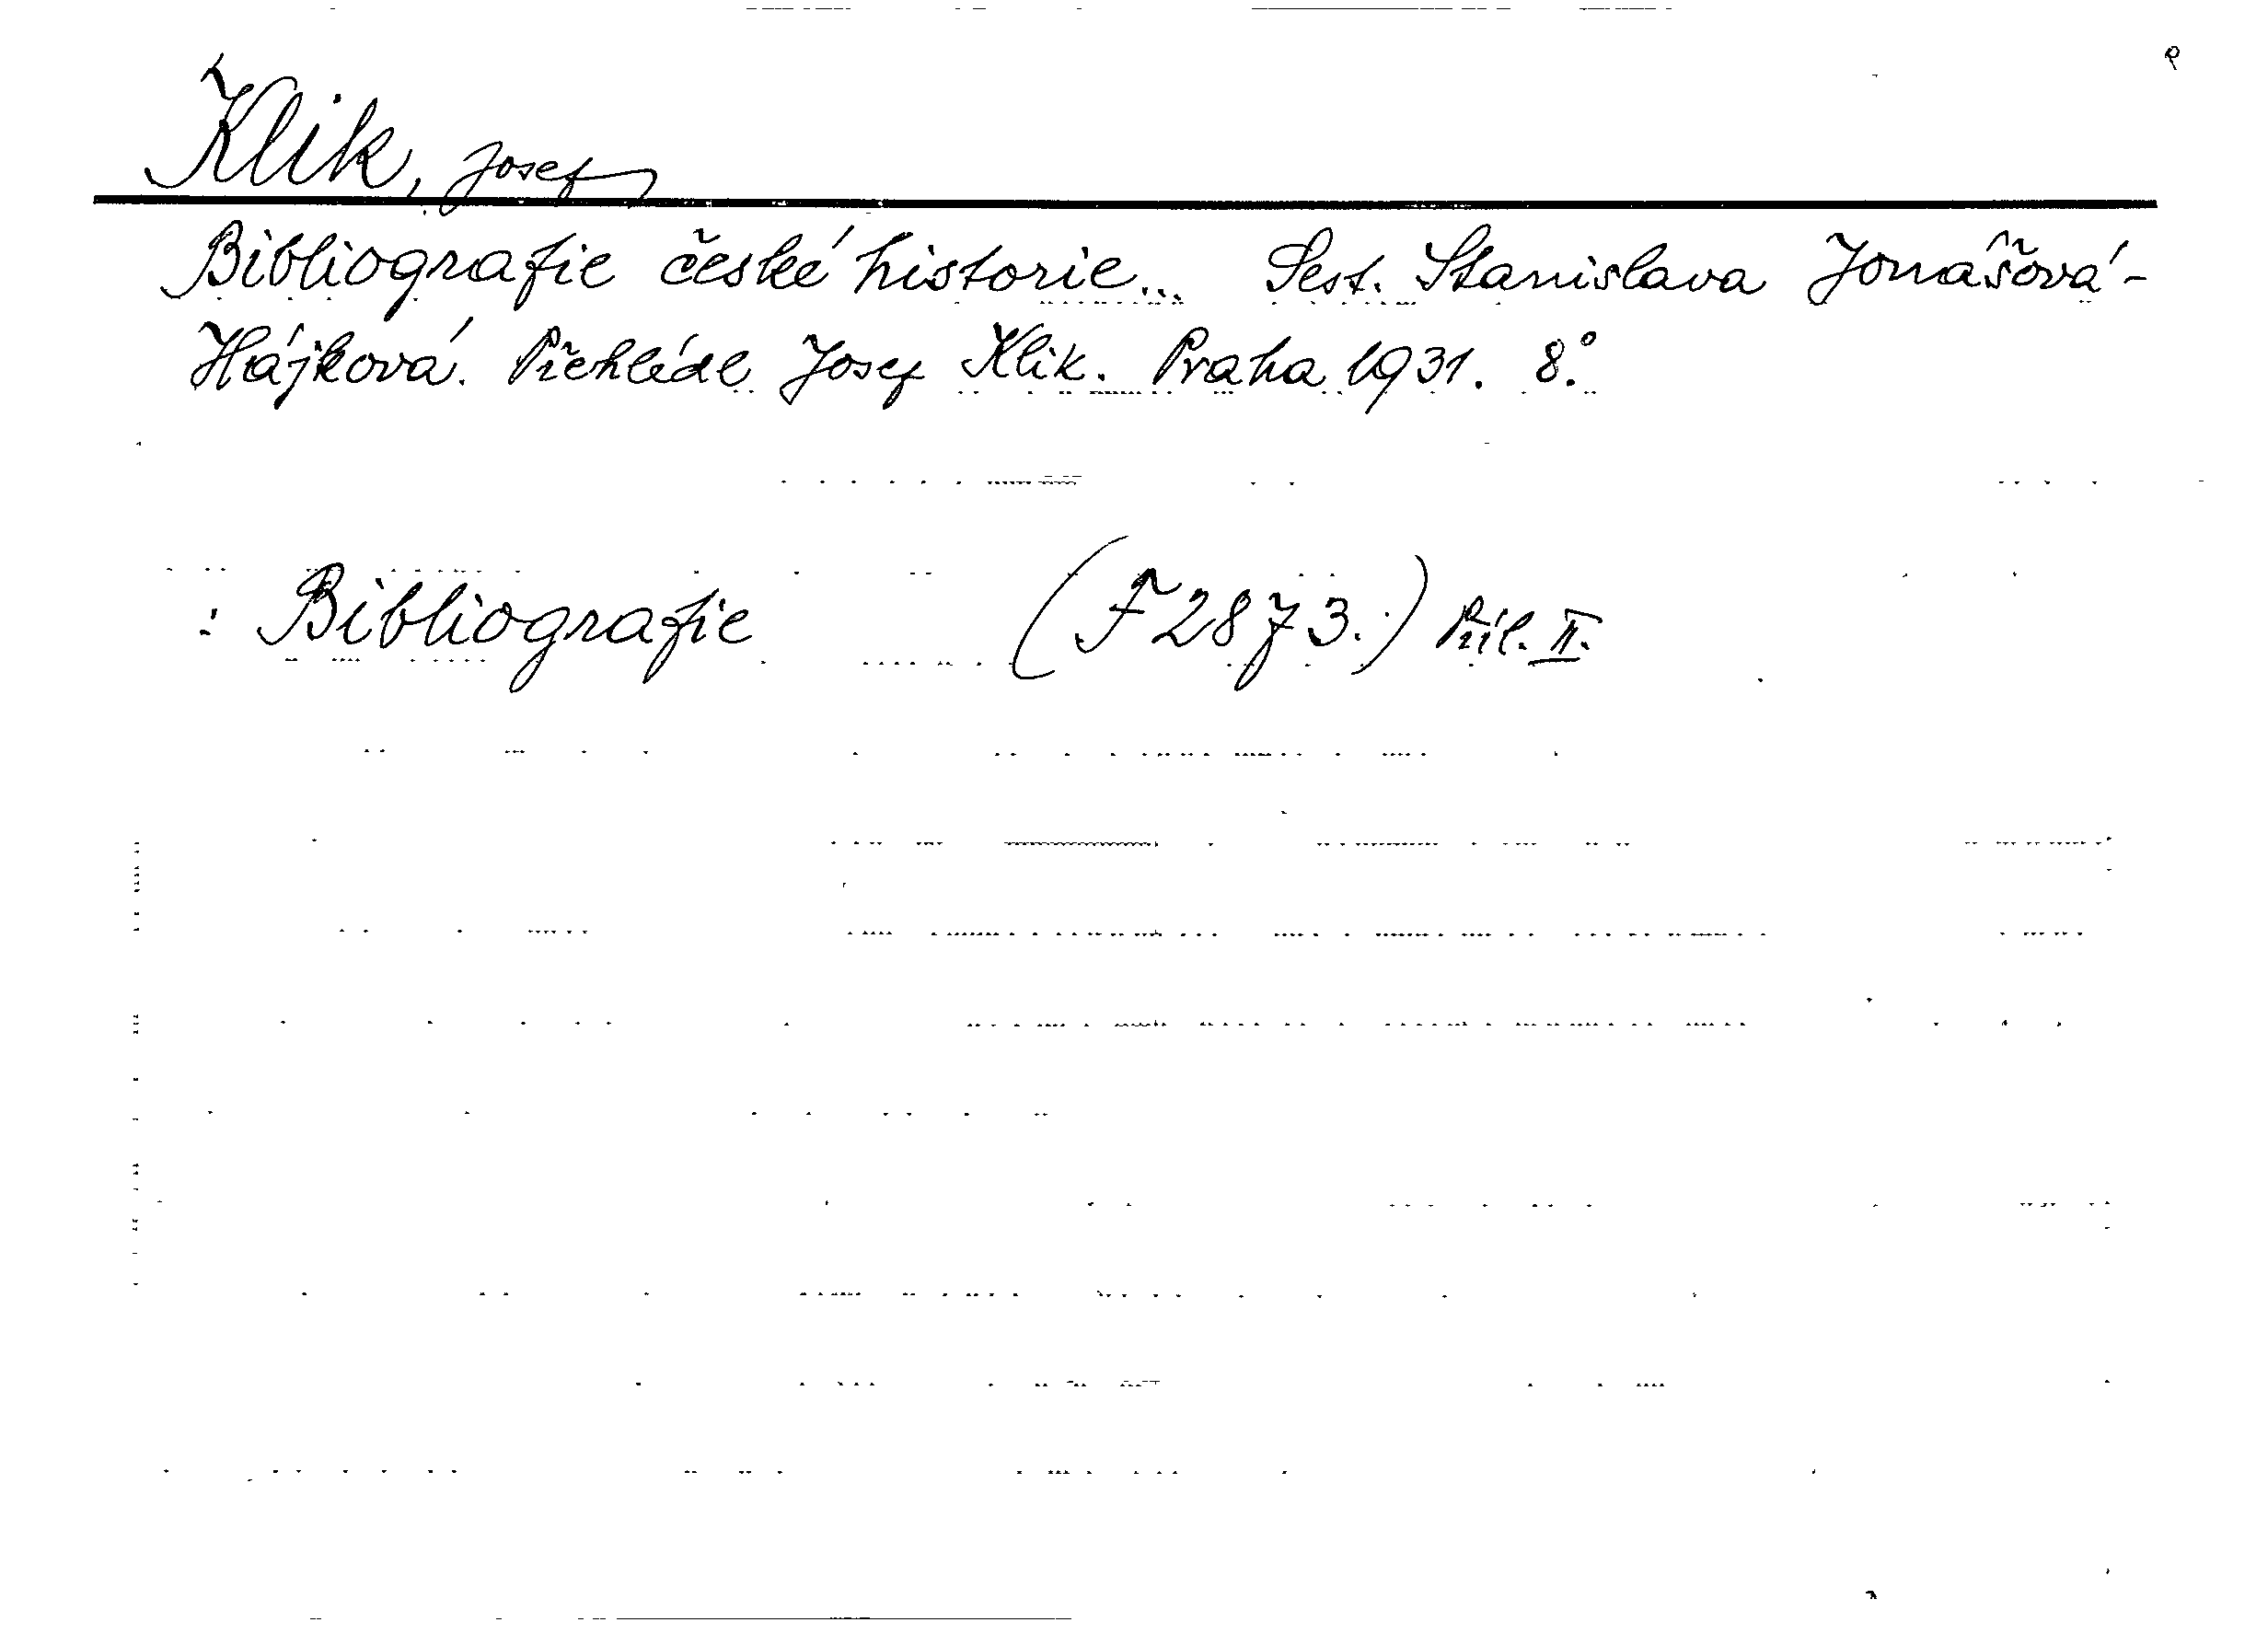 Klik, Josef
Bibliografie české historie... Sest. Stanislava Jonášová-
Hájková. Přehlédl Josef Klik. Praha 1931. 8.°
: Bibliografie (F 2873.) Příl. II.